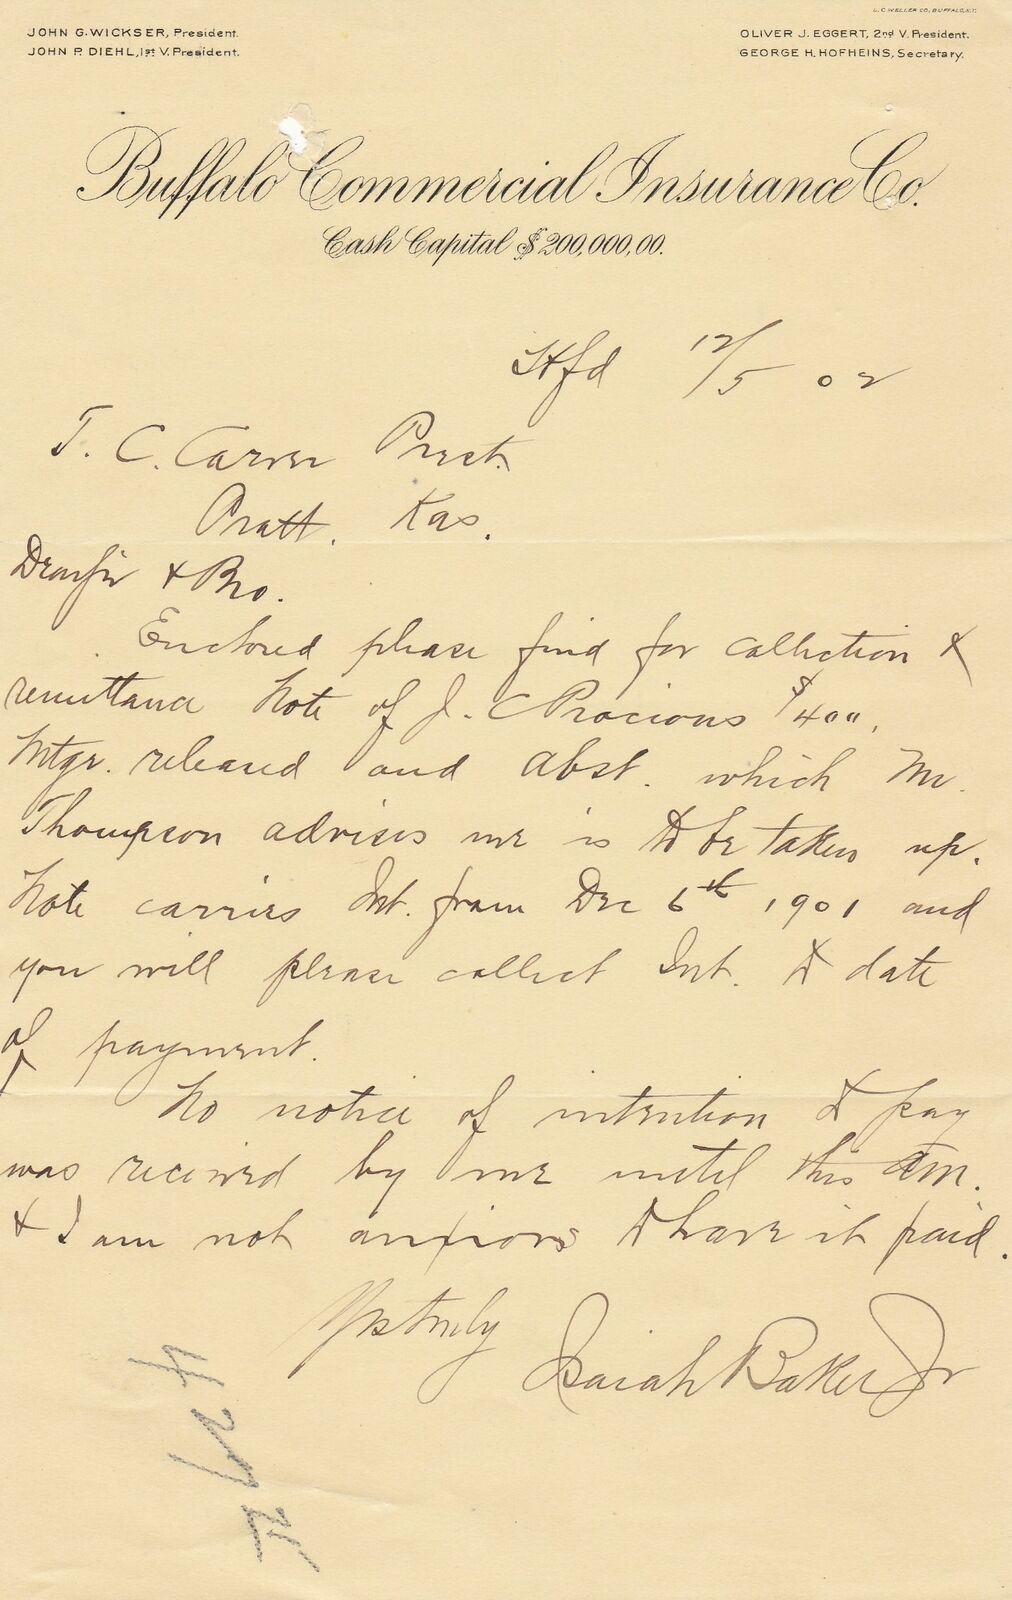 L.C. WELLER CO., BUFFALO, N.Y.
JOHN G. WICKSER, President.
JOHN P. DIEHL, 1st V. President.
OLIVER J. EGGERT, 2nd V. President.
GEORGE H. HOFHEINS, Secretary.
Buffalo Commercial Insurance Co.
Cash Capital $200,000,00.
Hfd 12/5 02
T. C. Carver Prest.
Pratt, Kas.
Dear Sir & Bro.
Enclosed please find for collection &
remittance Note of J. C Procious $400,
Mtge. released and Abst. which Mr.
Thompson advises me is to be taken up.
Note carries Int. from Dec 6th 1901 and
you will please collect Int. to date
of payment.
No notice of intention to pay
was received by me until this AM.
& I am not anxious to have it paid.
Yrs truly
Isaiah Baker Jr